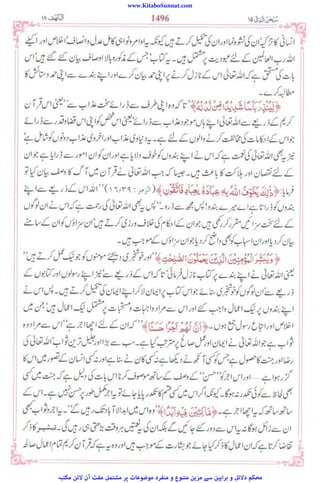 www.KitaboSunnat.com
سُبْحٰنَ الَّذِیْٓ ١٥
1496
اَلْکَہْف ١٨
انسانی کا تزکیہ، ان کی نشوونما اور ان کی تکمیل کرتے ہیں کیونکہ یہ اوامر و نواہی کامل عدل و انصاف، اخلاص اور اکیلے
اللہ رب العالمین کے لئے عبودیت پر مشتمل ہیں۔ یہ کتاب جس کے مذکورہ بالا اوصاف بیان کئے گئے ہیں اس
بات کی مستحق ہے کہ اللہ تعالیٰ اس کے نازل کرنے پر اپنی حمد بیان کرے اور اپنے بندے سے اپنی حمد و ستائش کا
مطالبہ کرے۔
﴿لِّيُنْذِرَ بَاْسًا شَدِيْدًا مِّنْ لَّدُنْهُ﴾ ”تاکہ وہ اپنی طرف سے ڈرائے سخت عذاب سے“ یعنی اس قرآن
کریم کے ذریعے سے اللہ تعالیٰ اپنے ہاں موجود عذاب سے ڈرائے یعنی اس شخص کو اپنی اس قضا و قدر سے ڈرائے
جو اس کے احکامات کی مخالفت کرنے والوں کے لئے ہے۔ یہ دنیاوی عذاب اور اخروی عذاب دونوں کو شامل ہے
نیز یہ بھی اللہ تعالیٰ کی نعمت ہے کہ اس نے اپنے بندوں کو خوف دلایا ہے اور ان کو ان امور سے ڈرایا ہے جو ان
کے لئے نقصان اور ہلاکت کا باعث ہیں۔ جیسا کہ جب اللہ تعالیٰ نے قرآن میں آگ کا وصف بیان کیا تو
فرمایا: ﴿ذٰلِكَ يُخَوِّفُ اللّٰهُ بِهٖ عِبَادَهٗ يٰعِبَادِ فَاتَّقُوْنِ﴾ (الزمر: ١٦/٣٩) ”اللہ اس کے ذریعے سے اپنے
بندوں کو ڈراتا ہے اے میرے بندو! پس مجھ سے ڈرو۔“ پس یہ بھی اللہ تعالیٰ کی رحمت ہے کہ اس نے ان لوگوں
کے لئے سخت سزائیں مقرر کر رکھی ہیں جو ان کے احکام کی خلاف ورزی کرتے ہیں ان سزاؤں کو ان کے سامنے
بیان کر دیا اور ان اسباب کو بھی واضح کر دیا جو ان سزاؤں کے موجب ہیں۔
﴿وَيُبَشِّرَ الْمُؤْمِنِيْنَ الَّذِيْنَ يَعْمَلُوْنَ الصّٰلِحٰتِ﴾ ”اور خوشخبری دیجئے مومنوں کو جو نیک عمل کرتے ہیں“
یعنی اللہ تعالیٰ نے اپنے بندے پر کتاب نازل فرمائی تاکہ اس کے ذریعے سے نیز اپنے رسولوں اور کتابوں کے
ذریعے سے ان لوگوں کو خوشخبری سنائے جو اس کتاب پر ایمان لا کر اپنے ایمان کی تکمیل کرتے ہیں۔ پس اس نے
اپنے بندوں پر نیک اعمال واجب کئے اور اس سے مراد واجبات و مستحبات پر مشتمل نیک اعمال ہیں جن میں
اخلاص اور اتباع رسول جمع ہوں۔ ﴿اَنَّ لَهُمْ اَجْرًا حَسَنًا﴾ ”کہ ان کے لئے اچھا اجر ہے“ اس سے مراد وہ
ثواب ہے جو اللہ تعالیٰ نے ایمان اور عمل صالح پر مترتب کیا ہے۔ سب سے بڑا اور جلیل ترین ثواب اللہ تعالیٰ کی
رضا اور جنت کا حصول ہے جس کو کسی آنکھ نے دیکھا ہے نہ کسی کان نے سنا ہے اور نہ کسی انسان کے تصور میں اس کا
گزر ہوا ہے... اور اس اجر کو ”حسن“ کے وصف کے ساتھ موصوف کرنا اس بات کی دلیل ہے کہ جنت میں کسی
ساتھ ساتھ کہ یہ اچھا اجر ہے۔ ﴿مَّاكِثِيْنَ فِيْهِ اَبَدًا﴾ ”وہ اس میں ابدالآباد تک رہیں گے“۔ یہ اجر و ثواب کبھی
تقاضا کرتا ہے کہ ان اعمال کا ذکر کیا جائے جو بشارت کے موجب ہیں اور وہ یہ ہے کہ قرآن کریم تمام اعمال صالحہ
محکم دلائل و براہین سے مزین متنوع و منفرد موضوعات پر مشتمل مفت آن لائن مکتبہ